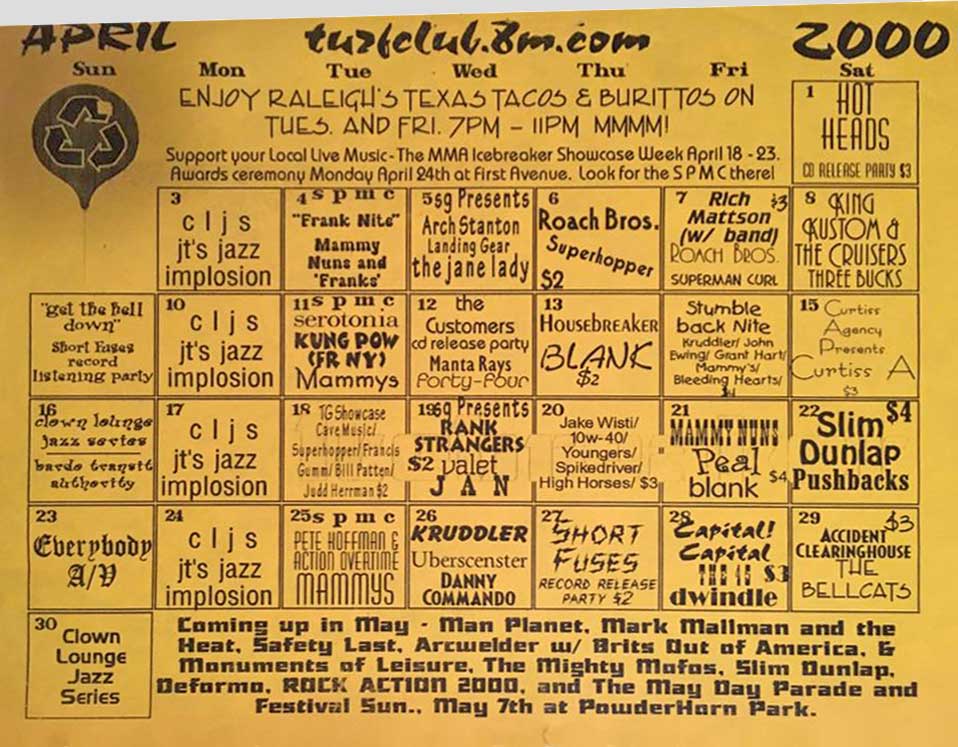 APRIL turfclub.8m.com 2000
Sun Mon Tue Wed Thu Fri Sat
ENJOY RALEIGH'S TEXAS TACOS & BURITTOS ON
TUES. AND FRI. 7PM - 11PM MMMM!
Support your Local Live Music-The MMA Icebreaker Showcase Week April 18 - 23.
Awards ceremony Monday April 24th at First Avenue. Look for the S P M C there!
1 HOT
HEADS
CD RELEASE PARTY $3
3
c l j s
jt's jazz
implosion
4 s p m c
"Frank Nite"
Mammy
Nuns and
'Franks'
5 sg Presents
Arch Stanton
Landing Gear
the jane lady
6
Roach Bros.
Superhopper
$2
7 Rich $3
Mattson
(w/ band)
ROACH BROS.
SUPERMAN CURL
8 KING
KUSTOM &
THE CRUISERS
THREE BUCKS
"get the hell
down"
Short Fuses
record
listening party
10
c l j s
jt's jazz
implosion
11 s p m c
serotonia
KUNG POW
(FR NY)
Mammys
12 the
Customers
cd release party
Manta Rays
Forty-Four
13
HOUSEBREAKER
BLANK
$2
Stumble
back Nite
Kruddler/ John
Ewing/ Grant Hart/
Mammy's/
Bleeding Hearts/
15 Curtiss
Agency
Presents
Curtiss A
$3
16
clown lounge
jazz series
bardo transit
authority
17
c l j s
jt's jazz
implosion
18 TG Showcase
Cave Music/
Superhopper/Francis
Gumm/ Bill Patten/
Judd Herrman $2
19 sg Presents
RANK
STRANGERS
$2 valet
J A N
20
Jake Wisti/
10w-40/
Youngers/
Spikedriver/
High Horses/ $3
21
MAMMY NUNS
Peal
blank $4
22 $4
Slim
Dunlap
Pushbacks
23
Everybody
A/V
24
c l j s
jt's jazz
implosion
25 s p m c
PETE HOFFMAN &
ACTION OVERTIME
MAMMYS
26
KRUDDLER
Uberscenter
DANNY
COMMANDO
27
SHORT
FUSES
RECORD RELEASE
PARTY $2
28
Capital!
Capital
THE 15 $3
dwindle
29 $3
ACCIDENT
CLEARINGHOUSE
THE
BELLCATS
30
Clown
Lounge
Jazz
Series
Coming up in May - Man Planet, Mark Mallman and the
Heat, Safety Last, Arcwelder w/ Brits Out of America, &
Monuments of Leisure, The Mighty Mofos, Slim Dunlap,
Deformo, ROCK ACTION 2000, and The May Day Parade and
Festival Sun., May 7th at PowderHorn Park.